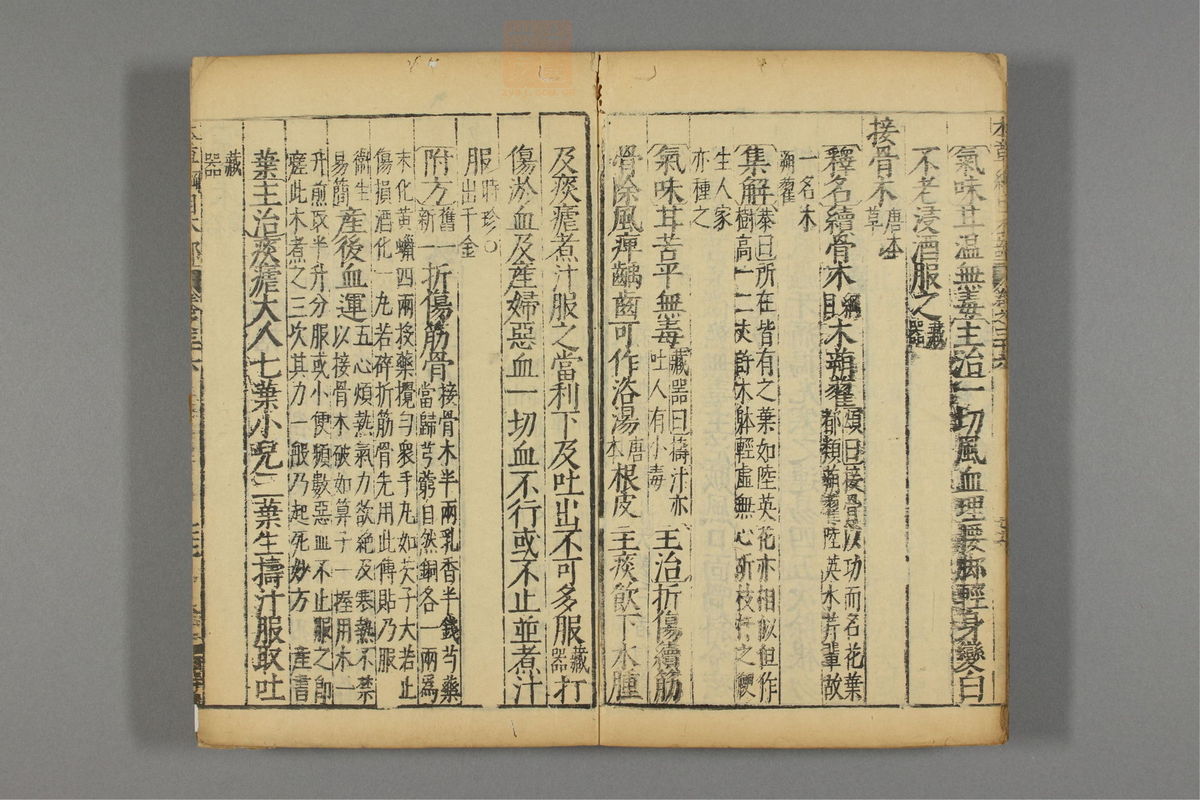 氣味甘溫無毒主治一切風血理腰脚輕身變白
不老浸酒服之藏器
接骨木唐本草
釋名續骨木綱目木蒴藋頌曰接骨以功而名花葉都類蒴藋陸英水芹輩故
一名木蒴藋
集解恭曰所在皆有之葉如陸英花亦相似但作樹高一二丈許木躰輕虛無心斫枝扦之便
生人家亦種之
氣味甘苦平無毒藏器曰擣汁亦吐人有小毒主治折傷續筋
骨除風痺齲齒可作浴湯唐本根皮主痰飲下水腫
及痰瘧煮汁服之當利下及吐出不可多服藏器打
傷瘀血及產婦惡血一切血不行或不止並煮汁
服時珍○出千金
附方舊一新一折傷筋骨接骨木半兩乳香半錢芍藥當歸芎藭自然銅各一兩爲
末化黃蠟四兩投藥攪勻衆手丸如芡子大若止傷損酒化一丸若碎折筋骨先用此傅貼乃服
衞生易簡產後血運五心煩熱氣力欲絕及寒熱不禁以接骨木破如筭子一握用水一
升煎取半升分服或小便頻數惡血不止服之卽瘥此木煮之三次其力一般乃起死妙方產書
葉主治痰瘧大人七葉小兒二葉生擣汁服取吐
藏器